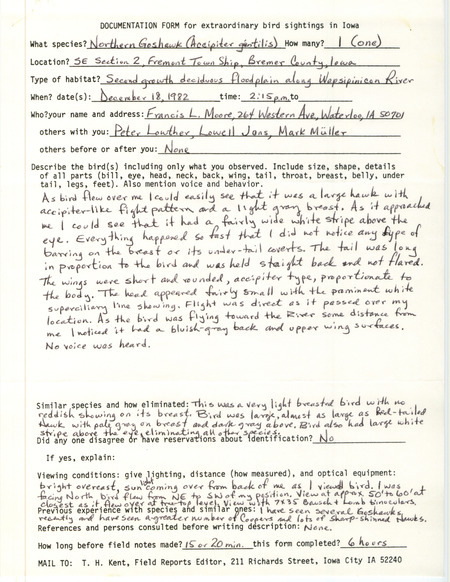 DOCUMENTATION FORM for extraordinary bird sightings in Iowa
What species? Northern Goshawk (Accipiter gentilis) How many? 1 (one)
Location? SE Section 2, Fremont Town Ship, Bremer County, Iowa
Type of habitat? Second growth deciduous floodplain along Wapsipinicon River
When? date(s): December 18, 1982 time: 2:15 p.m. to
Who?your name and address: Francis L. Moore, 264 Western Ave, Waterloo, IA 50701
others with you: Peter Lowther, Lowell Jons, Mark Müller
others before or after you: None
Describe the bird(s) including only what you observed. Include size, shape, details
of all parts (bill, eye, head, neck, back, wing, tail, throat, breast, belly, under
tail, legs, feet). Also mention voice and behavior.
As bird flew over me I could easily see that it was a large hawk with
accipiter-like flight pattern and a light gray breast. As it approached
me I could see that it had a fairly wide white stripe above the
eye. Everything happened so fast that I did not notice any type of
barring on the breast or its under-tail coverts. The tail was long
in proportion to the bird and was held straight back and not flared.
The wings were short and rounded, accipiter type, proportionate to
the body. The head appeared fairly small with the prominent white
superciliary line showing. Flight was direct as it passed over my
location. As the bird was flying toward the River some distance from
me I noticed it had a bluish-gray back and upper wing surfaces.
No voice was heard.
Similar species and how eliminated: This was a very light breasted bird with no
reddish showing on its breast. Bird was large, almost as large as Red-tailed
Hawk with pale gray on breast and dark gray above. Bird also had large white
stripe above the eye, eliminating all other species.
Did any one disagree or have reservations about identification? No
If yes, explain:
Viewing conditions: give lighting, distance (how measured), and optical equipment:
bright overcast, sun coming over from back of me as I viewed bird. I was
facing North bird flew from NE to SW of my position. View at approx 50' to 60' at
closest as it flew over at tree-top level. View with 7X35 Bausch & Lomb binoculars.
Previous experience with species and similar ones: I have seen several Goshawks,
recently and have seen a greater number of Coopers and lots of Sharp-shinned Hawks.
References and persons consulted before writing description: None.
How long before field notes made? 15 or 20 min. this form completed? 6 hours
MAIL TO: T. H. Kent, Field Reports Editor, 211 Richards Street, Iowa City IA 52240